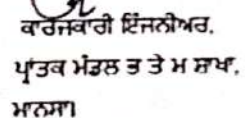 ਕਾਰਜਕਾਰੀ ਇੰਜਨੀਅਰ,
ਪ੍ਰਾਂਤਕ ਮੰਡਲ ਭ ਤੇ ਮ ਸ਼ਾਖਾ,
ਮਾਨਸਾ।